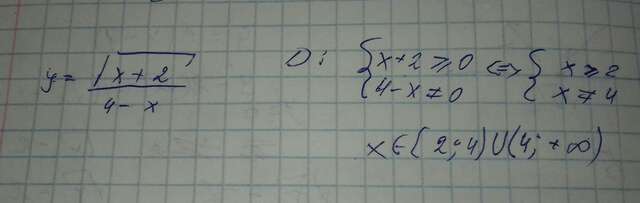 y = √(x + 2) / (4 - x)
D: { x + 2 ≥ 0 ⇔ { x ≥ 2
{ 4 - x ≠ 0 { x ≠ 4
x ∈ [2; 4) ∪ (4; +∞)